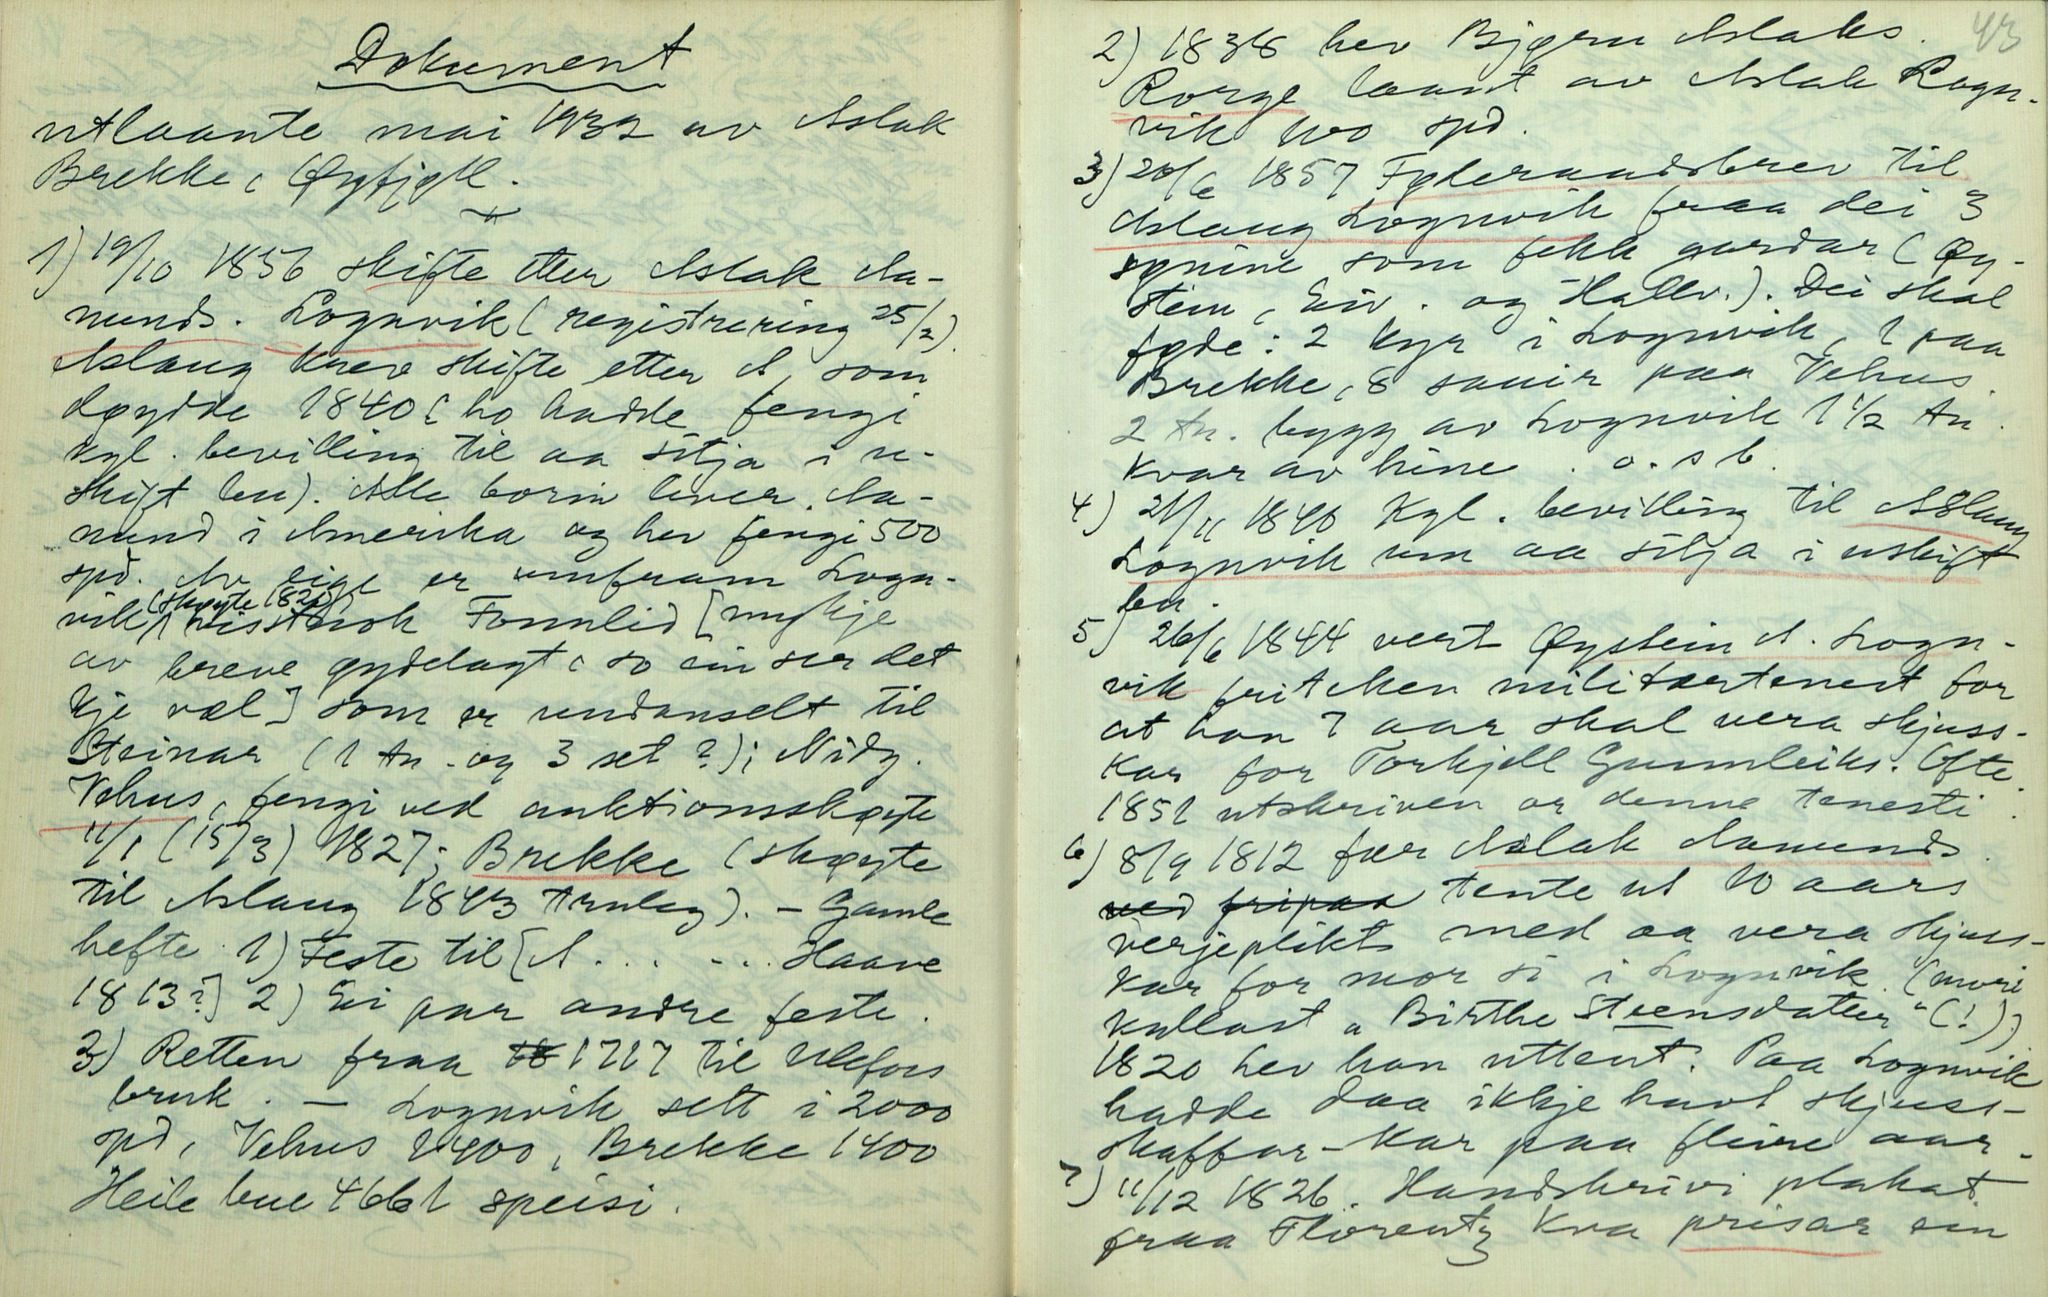 Dokument
utlaante mai 1932 av Aslak
Brekke, Øyfjell.
1) 19/10 1856 skifte etter Aslak Aa-
munds. Lognvik (registrering 25/2).
Aslaug krev skifte etter A, som
døydde 1840 (ho hadde fengi
kgl. bevilling til aa sitja i u-
skift bu). Alle borni lever. Aa-
mund i Amerika og hev fengi 500
spd. Av eige er umfram Logn-
vik (skøyte 1820) visstnok Fonnlid [mykje
av breve øydelagt, so ein ser det
kje væl] som er undanselt til
Steinar (1 tn. og 3 set ?); Nidg.
Vehus, fengi ved auktionsskøyte
11/1 (15/3) 1827; Brekke (skøyte
til Aslaug 1843 truleg). – Gamle
hefte 1) Feste til [A. . . - . . Haave
1813?] 2) Ei par andre feste.
3) Retten fraa 1717 til Ulefoss
bruk. – Lognvik sett i 2000
spd, Vehus 1400, Brekke 1400
Heile bue 4661 speisi.
43
2) 1838 hev Bjørn Aslaks.
Rorge laant av Aslak Logn-
vik 100 spd.
3) 20/6 1857 Føderaadsbrev til
Aslaug Lognvik fraa dei 3
synine som fekk gardar (Øy-
stein, Eiv. og Hallv.). Dei skal
føde: 2 kyr i Lognvik, 1 paa
Brekke, 8 sauir paa Vehus.
2 tn. bygg av Lognvik 1 1/2 tn.
kvar av hine. o. s b.
4) 21/11 1840 Kgl. bevilling til Aslaug
Lognvik um aa sitja i uskift
bu.
5) 26/6 1844 vert Øystein A. Logn-
vik friteken militærtenest for
at han 7 aar skal vera skjuss-
kar for Torkjell Gunnleiks. Ofte.
1851 utskriven or denne tenesti.
6) 8/9 1812 fær Aslak Aamunds.
ved fripaa tente ut 10 aars
verjeplikt med aa vera skjuss-
kar for mor si i Lognvik. (mori
kallast "Birthe Steensdatter" (!))
1820 hev han uttent. Paa Lognvik
hadde daa ikkje havt skjuss-
skaffar-kar paa fleire aar.
7) 11/12 1826. Handskrivi plakat
fraa Florentz kva prisar ein